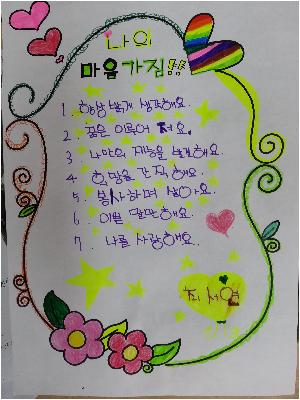 나의
마음가짐!!
1. 항상 밝게 생각해요.
2. 꿈은 이루어 져요.
3. 나만의 재능을 발견해요.
4. 희망을 간직해요.
5. 봉사하며 살아요.
6. 이쁜 말만해요.
7. 나를 사랑해요.
최서영